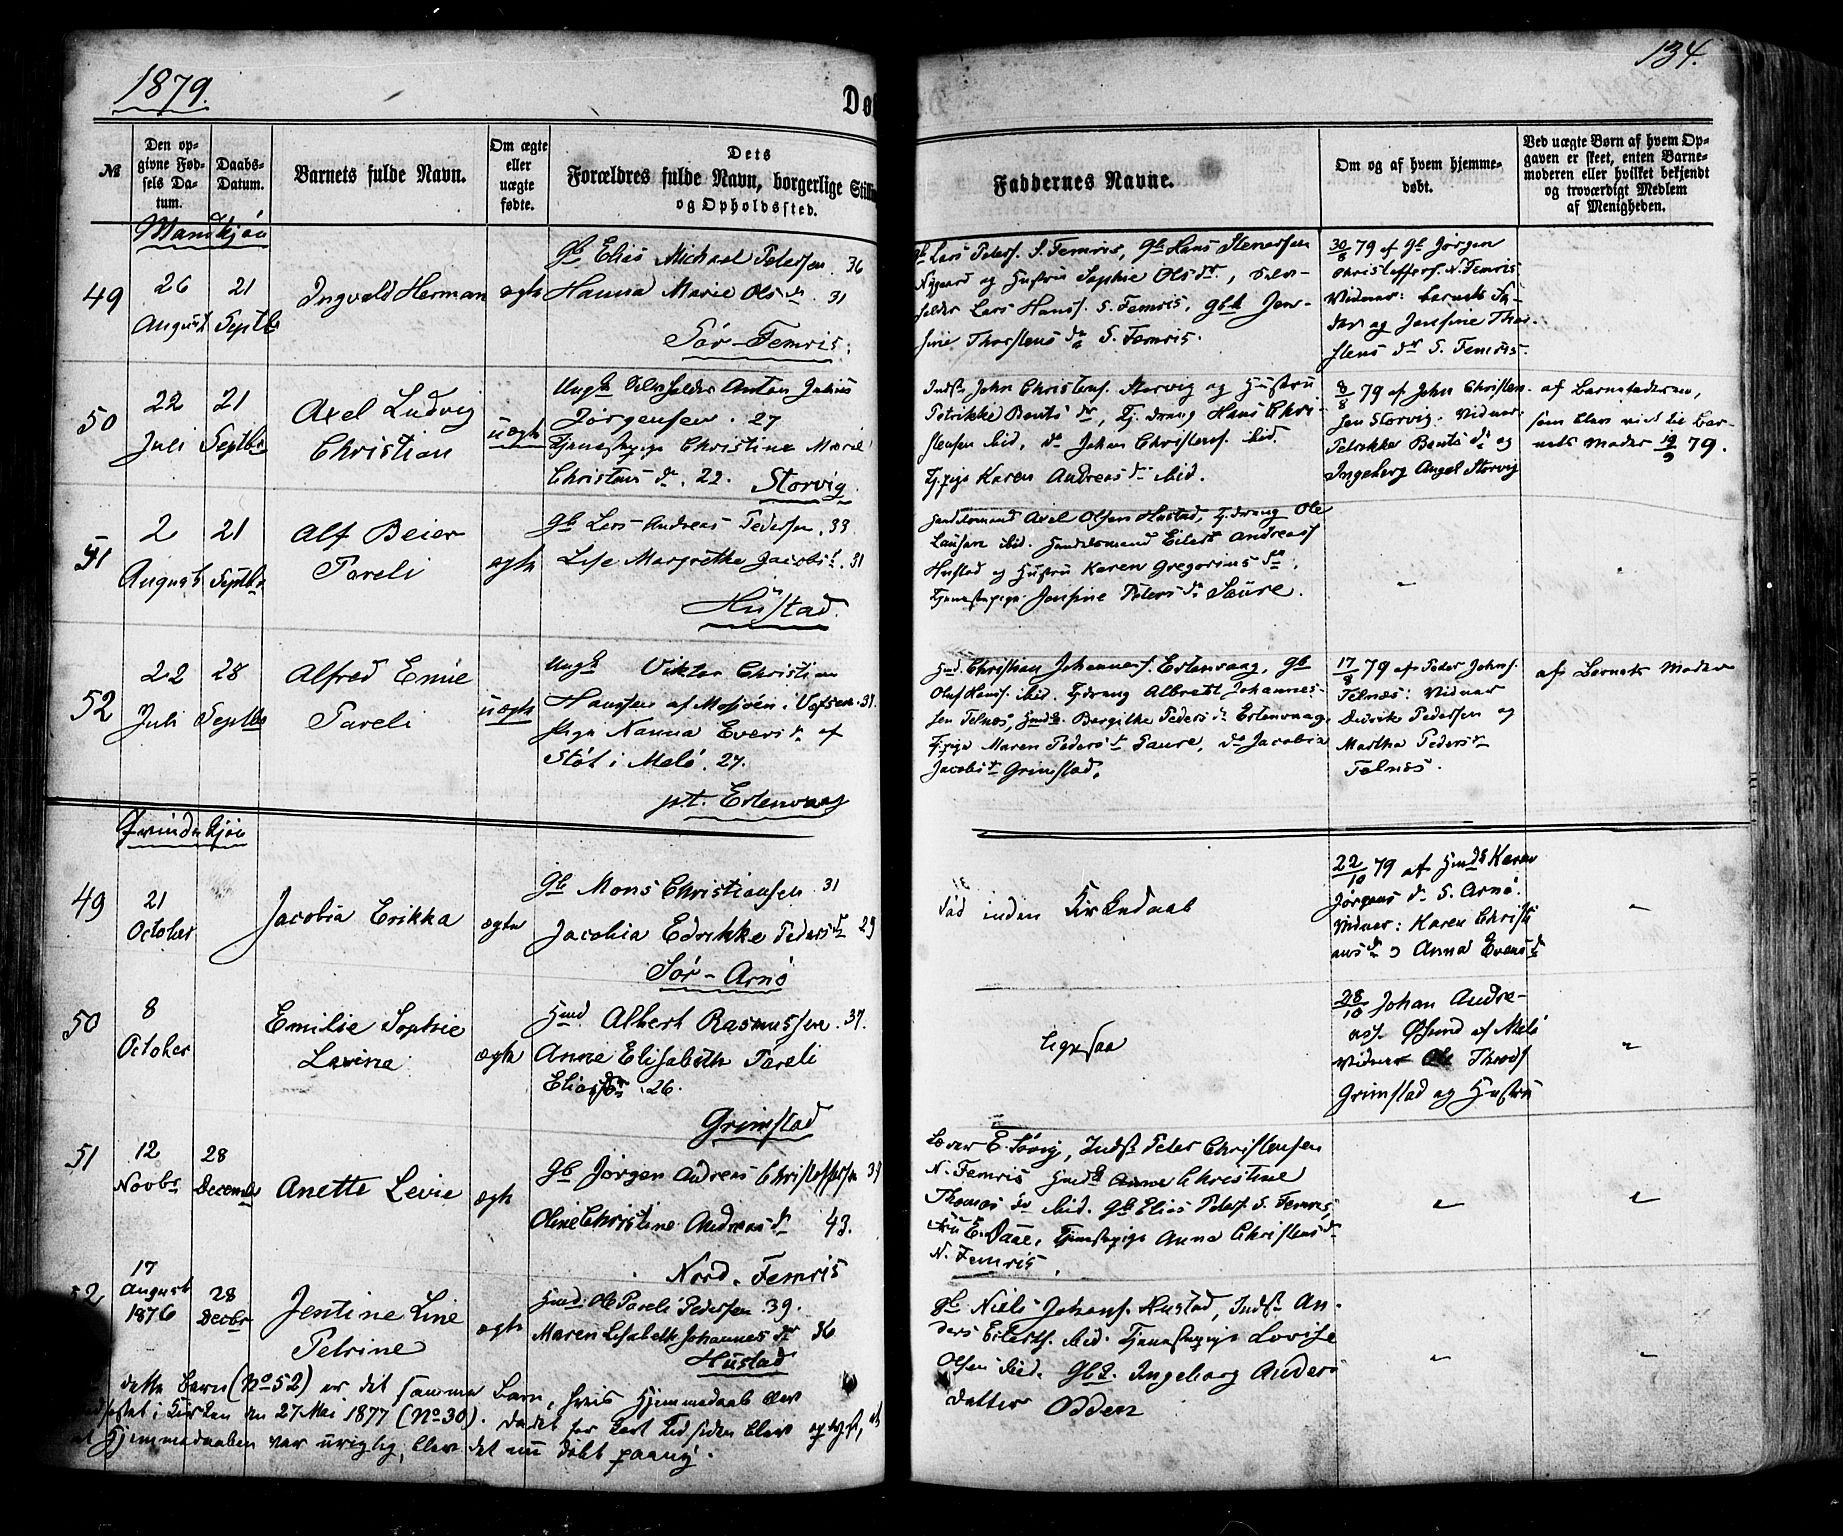 1879.
134.
Dø
№
Den op-
givne Fød-
sels Da-
tum.
Daabs-
Datum.
Barnets fulde Navn.
Om ægte
eller
uægte
fødte.
Dets
Forældres fulde Navn, borgerlige Stilli
og Opholdssted.
Faddernes Navne.
Om og af hvem hjemme-
døbt.
Ved uægte Børn af hvem Op-
gaven er skeet, enten Barne-
moderen eller hvilket bekjendt
og troværdigt Medlem
af Menigheden.
Mandkjøn
49
26
August
21
Septbr
Ingvald Herman
ægte
Gb Elias Michael Pedersen . 36
Hanna Marie Olsdr . 31
Sør-Femris.
Lars Peders. S. Femris, Gb Hans Stenersen
Nygaard og Hustru Sophie Olsdr,
Lars Hanss. S. Femris, Gbk Jen-
sine Thorstensdr S. Femris.
30/8 79 af Gb Jørgen
Christoffers. N. Femris
Vidner: Barnets Fa-
der og Jensine Thor-
stensdr S. Femris.
50
22
Juli
21
Septbr
Axel Ludvig
Christian
uægte
Ungk Anton Julius
Jørgensen . 27
Tjenestepige Christine Marie
Christensdr . 22. Storvig
Inds John Christens. Storvig og Hustru
Petrikke Bentsdr, Tj.dreng Hans Chri-
stensen ibid, do Johan Christens. ibid.
Tj.pige Karen Andreasdr ibid.
8/8 79 af John Christen-
sen Storvig. Vidner
Petrikke Bentsdr og
Ingeborg Angel Storvig
af Barnefaderen,
som blev viet til Bar-
nets Moder 19/9 79.
51
2
August
21
Septbr
Alf Beier
Pareli
ægte
Gb Lars Andreas Pedersen . 33
Lise Margrethe Jacobsdr . 31
Hustad.
Handelsmand Axel Olsen Hustad, Tj.dreng Ole
Laursen ibid. Handelsmand Eilert Andreass
Hustad og Hustru Karen Gregoriusdr,
Tjenestepige Jensine Pedersdr Saure.
"
"
52
22
Juli
28
Septbr
Alfred Emil
Pareli
uægte
Ungk Viktor Christian
Hansen af Mosjøen i Vefsen . 31
Pige Nanna Eversdr af
Støt i Melø . 27.
pt. Ertenvaag
Hmd. Christian Johannes. Ertenvaag, Gb
Oluf Hanss. ibid. Tj.dreng Albrett Johannes-
sen Felnæs, Hmdk. Bergithe Pedersdr Ertenvaag,
Tj.pige Maren Pedersdr Saure, do Jacobia
Jacobsdr Grimstad.
17/8 79 af Peder Johns.
Felnæs: Vidner
Didrik Pedersen og
Martha Pedersdr
Felnæs.
af Barnets Moder
Qvindekjøn
49
21
October
Jacobia Erikka
ægte
Gb Mons Christiansen . 31
Jacobia Edrikke Pedersdr 29
Sør-Arnø
Død inden Kirkedaab
22/10 79 af Hmdk Karen
Jørgensdr S. Arnø.
Vidner: Karen Christi
ansdr og Anna Evensdr
"
50
8
October
Emilie Sophie
Lavina
ægte
Hmd. Albert Rasmussen . 37.
Anne Elisabeth Pareli
Eliasdr . 26.
Grimstad
ligesaa
28/10 Johan Andre-
ass. Øsund af Melø
Vidner Ole Thords
Grimstad og Hustru
"
51
12
Novbr
28
December
Anette Levie
ægte
Gb Jørgen Andreas Christoffersen 39
Oline Christine Andreasdr 43.
Nord. Femris
Lærer E. Sørvig, Inds Peter Christensen
N. Femris Hmdk Christine
Thomasdr ibid. Gb Elias Peders S. Femris,
Fru E. Daae, Tjenestepige Anna Christensdr
N. Femris.
"
"
52
17
August
1876
28
Decbr
Jentine Line
Petrine
ægte
Hmd. Ole Pareli Pedersen . 39.
Maren Lisabeth Johannesdr 36
Hustad
Gb Niels Johans. Hustad, Inds An-
ders Eilerts. ibid. Tjenestepige Lovise
Olsen ibid. Gbk. Ingeborg Anders
datter Odden
"
"
Dette Barn (No 52) er det samme Barn, hvis Hjemmedaab blev
stadfæstet i Kirken den 27 Mai 1877 (No 30). Da det for kort Tid siden blev oplyst, at
Hjemmedaaben var urigtig, blev det nu døbt paany.